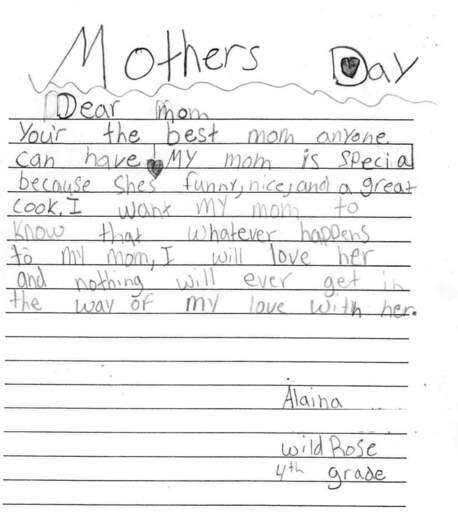 Mothers Day
Dear mom
Your'r the best mom anyone
can have! My mom is special
because she's funny, nice, and a great
cook. I want my mom to
know that whatever happens
to my mom, I will love her
and nothing will ever get in
the way of my love with her.
Alaina
Wild Rose
4th grade